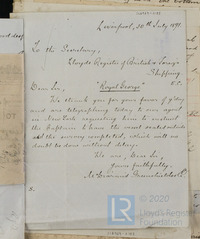 Liverpool, 30th July 1891.
To the Secretary,
Lloyds Register of British & Foreign
Shipping
E.C.
Dear Sir,
"Royal George"
We thank you for your favour of
and are telegraphing today to our agents
in New York requesting them to instruct
the Captain to have the most needed
of the survey completed, which will no
doubt be done without delay.
We are, Dear Sir,
Yours faithfully,
© 2020
LR
Lloyd's Register
Foundation